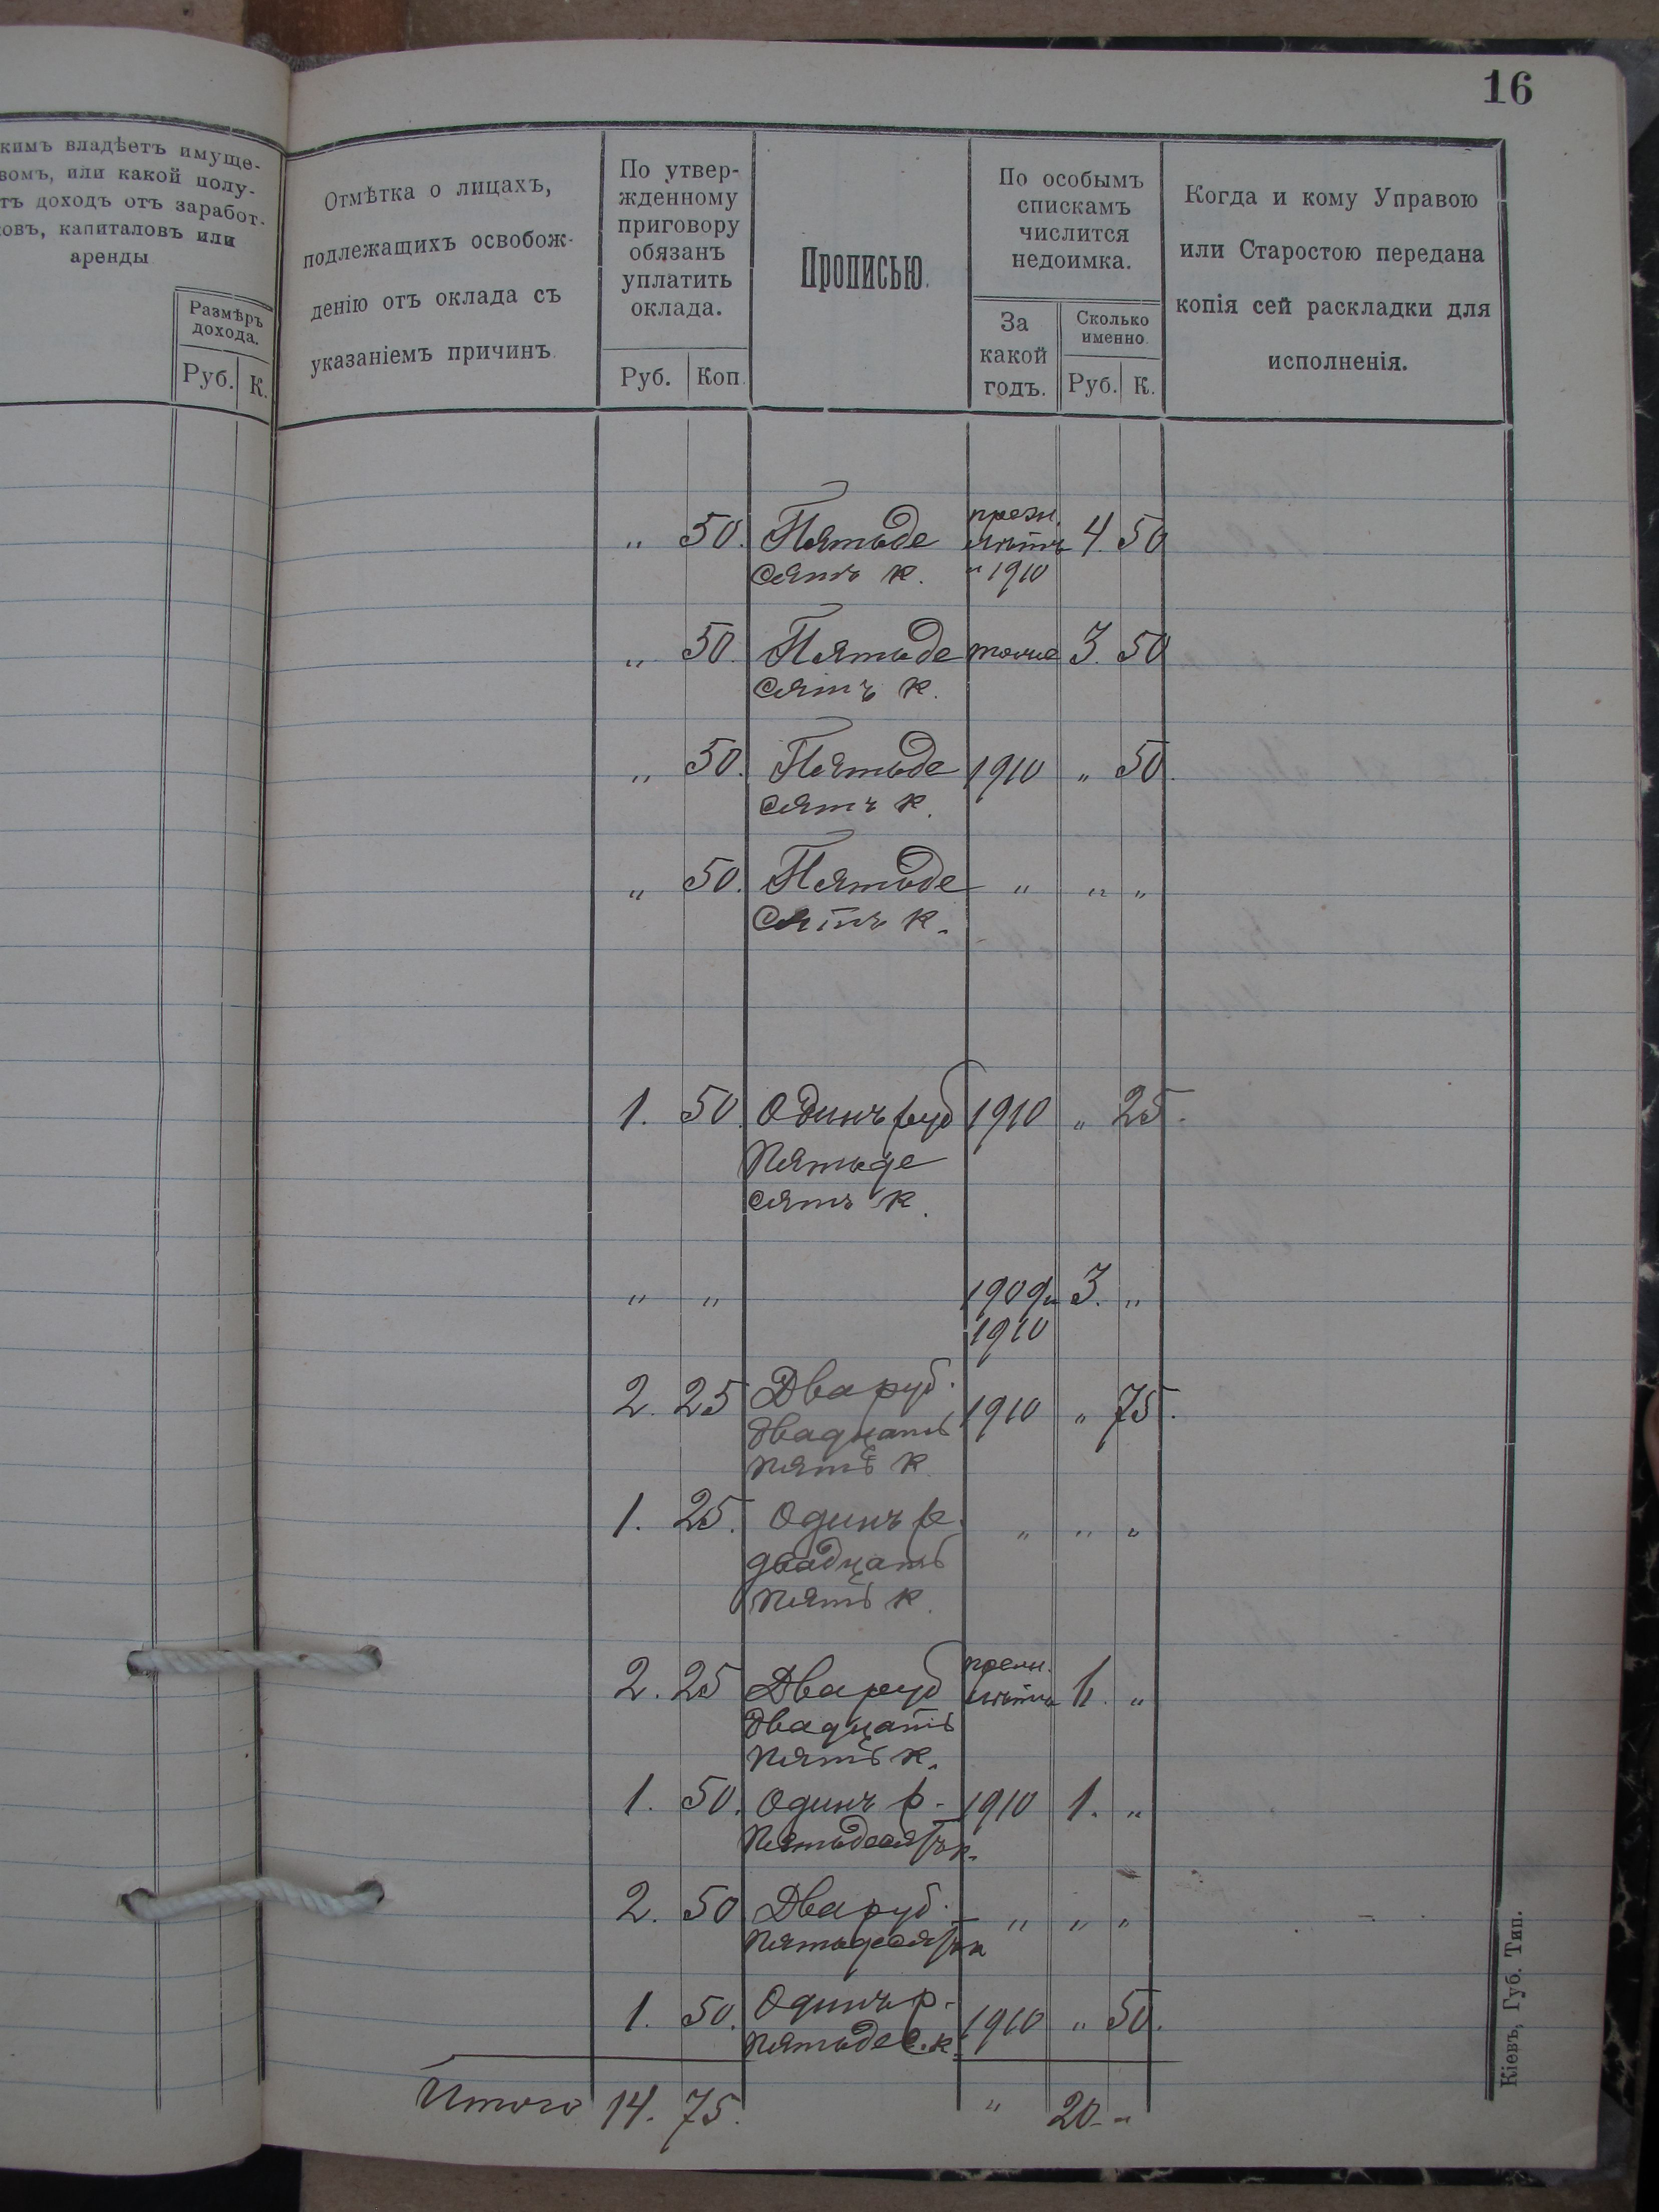 16
кимъ владѣетъ имуще-
вомъ, или какой полу-
тъ доходъ отъ заработ-
ковъ, капиталовъ или
аренды
Размѣръ
дохода.
Руб. К.
Отмѣтка о лицахъ,
подлежащихъ освобож-
денію отъ оклада съ
указаніемъ причинъ.
По утвер-
жденному
приговору
обязанъ
уплатить
оклада.
Руб. Коп.
Прописью.
По особымъ
спискамъ
числится
недоимка.
За
какой
годъ.
Сколько
именно.
Руб. К.
Когда и кому Управою
или Старостою передана
копія сей раскладки для
исполненія.
прежн.
„ 50. Пятьде лѣтъ 4. 50
сятъ к. и 1910
„ 50. Пятьде тоже 3. 50
сятъ к.
„ 50. Пятьде 1910 „ 50.
сятъ к.
„ 50. Пятьде „ „ „
сятъ к.
1. 50. Одинъ руб 1910 „ 25.
пятьде
сятъ к.
„ „ 1909 и 3. „
1910
2. 25 Два руб. 1910 „ 75.
двадцать
пять к.
1. 25. Одинъ р. „ „ „
двадцать
пять к.
прежн.
2. 25 Два руб лѣтъ „
двадцать
пять к.
1. 50. Одинъ р. 1910 1. „
пятьдесятъ к.
2. 50 Два руб. „ „ „
пятьдесятъ к
1. 50. Одинъ р. 1910 „ 50.
пятьдес. к.
Итого 14. 75. „ 20 - „
Кіевъ, Губ. Тип.